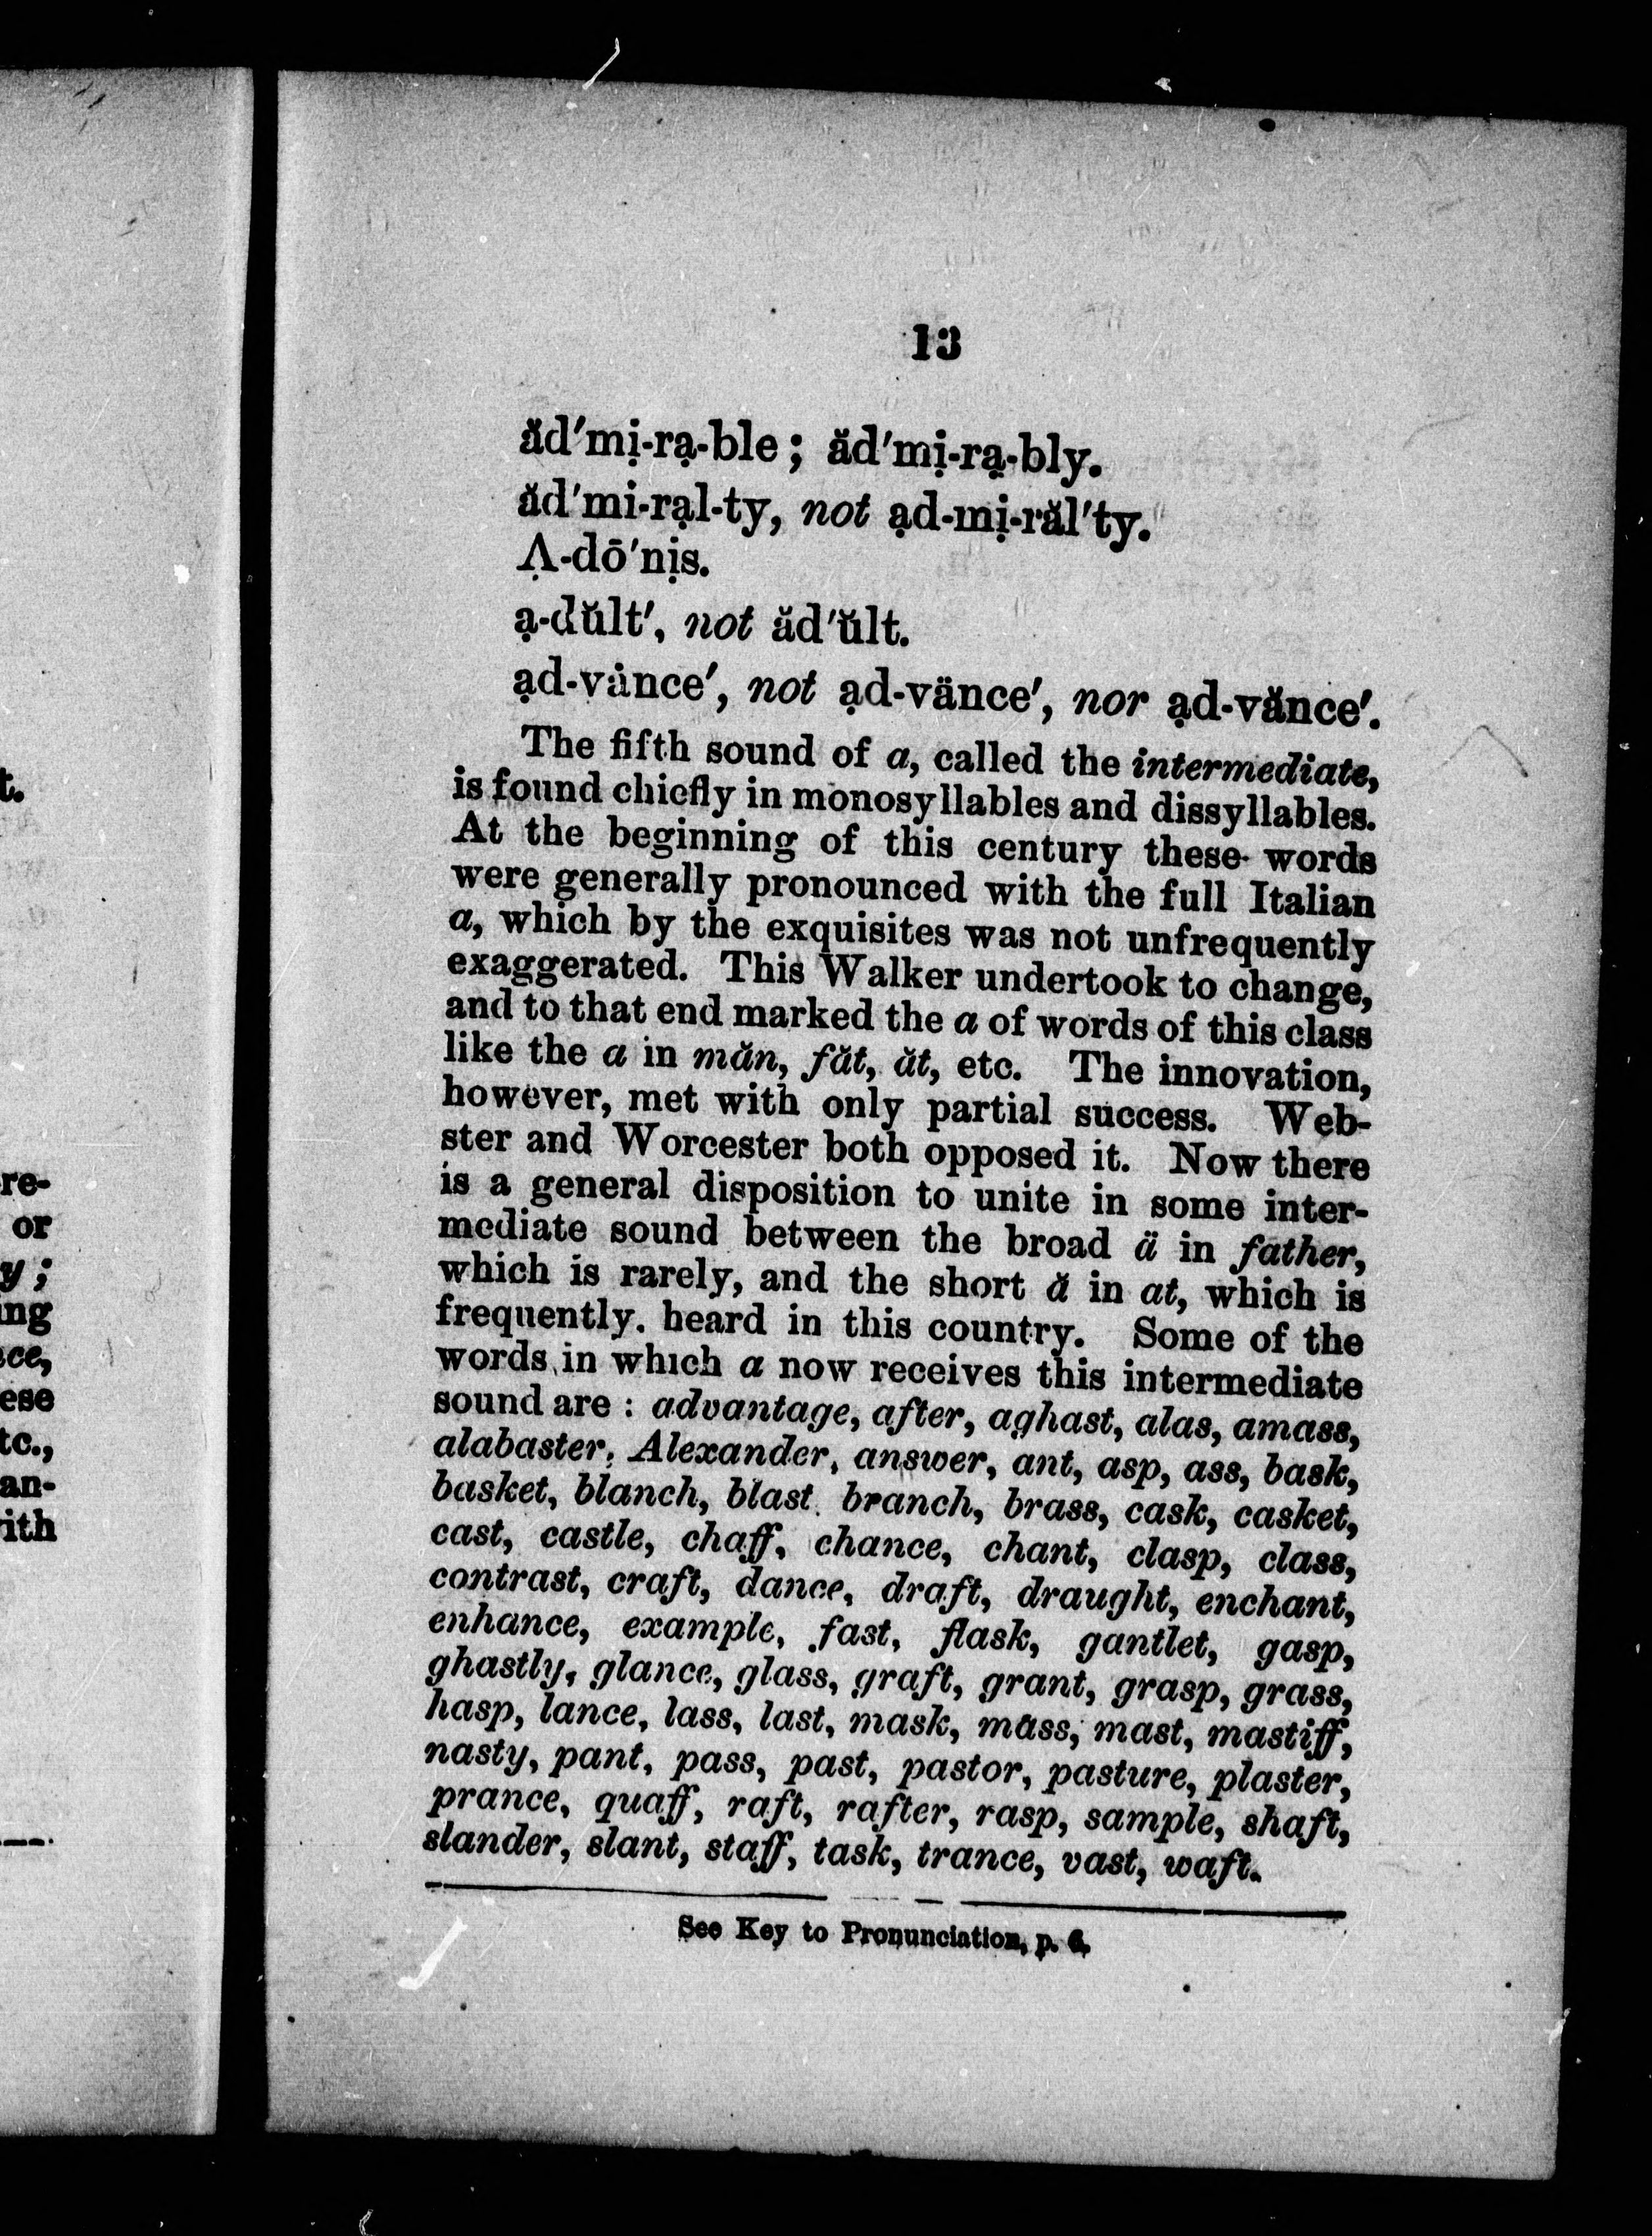 t.
re-
or
y;
ing
ce,
ese
tc.,
an-
ith
13
ăd'mị-rạ-ble; ăd'mị-rạ-bly.
ăd'mi-rạl-ty, not ạd-mị-răl'ty.
Ạ-dō'nịs.
ạ-dŭlt', not ăd'ŭlt.
ạd-vȧnce', not ạd-vänce', nor ạd-vănce'.
The fifth sound of a, called the intermediate,
is found chiefly in monosyllables and dissyllables.
At the beginning of this century these words
were generally pronounced with the full Italian
a, which by the exquisites was not unfrequently
exaggerated. This Walker undertook to change,
and to that end marked the a of words of this class
like the a in măn, făt, ăt, etc. The innovation,
however, met with only partial success. Web-
ster and Worcester both opposed it. Now there
is a general disposition to unite in some inter-
mediate sound between the broad ä in father,
which is rarely, and the short ă in at, which is
frequently, heard in this country. Some of the
words in which a now receives this intermediate
sound are: advantage, after, aghast, alas, amass,
alabaster, Alexander, answer, ant, asp, ass, bask,
basket, blanch, blast, branch, brass, cask, casket,
cast, castle, chaff, chance, chant, clasp, class,
contrast, craft, dance, draft, draught, enchant,
enhance, example, fast, flask, gantlet, gasp,
ghastly, glance, glass, graft, grant, grasp, grass,
hasp, lance, lass, last, mask, mass, mast, mastiff,
nasty, pant, pass, past, pastor, pasture, plaster,
prance, quaff, raft, rafter, rasp, sample, shaft,
slander, slant, staff, task, trance, vast, waft.
See Key to Pronunciation, p. 6.